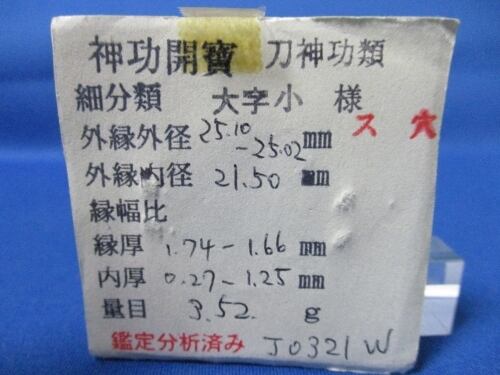 神功開寳 刀神功類
細分類 大字小 様
外縁外径 25.10-25.02 mm ス 穴
外縁内径 21.50 mm
縁幅比
縁厚 1.74-1.66 mm
内厚 0.27-1.25 mm
量目 3.52. g
鑑定分析済み J0321W